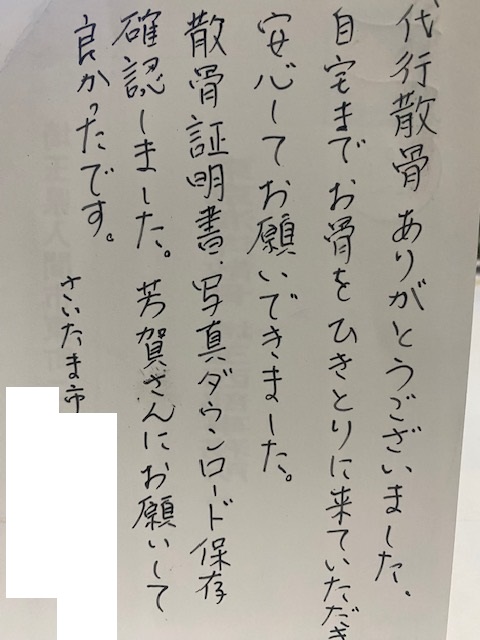 代行散骨 ありがとうございました。
自宅まで お骨を ひきとりに来ていただき
安心して お願いできました。
散骨証明書、写真ダウンロード保存
確認しました。芳賀さんにお願いして
良かったです。
さいたま市